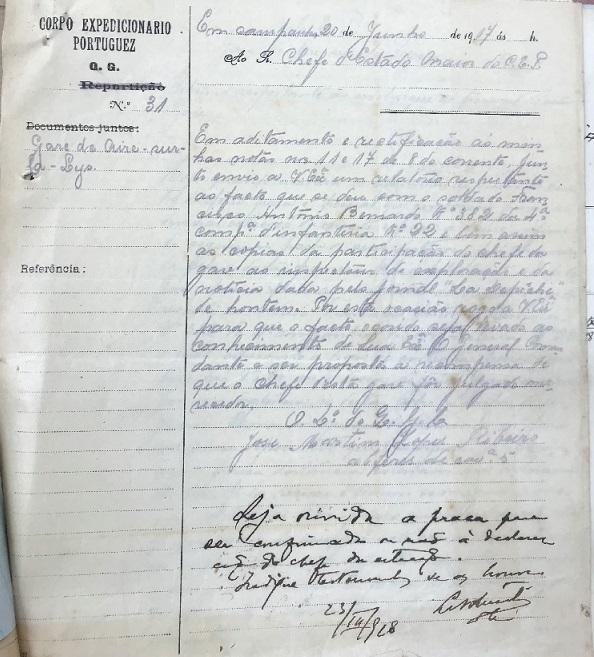 CORPO EXPEDICIONARIO
PORTUGUEZ
Q. G.
Repartição
N.º 31
Documentos juntos:
Gare de Aire-sur-
la-Lys.
Referência:
Em campanha 20 de Junho de 1917 ás h.
Ao Sr. Chefe d'Estado Maior do C.E.P.
Em aditamento e rectificação ás mi-
nhas notas nos 11 e 17 de 8 do corrente, jun-
to envio a V. Exª um relatorio respeitante
ao facto que se deu com o soldado Fran-
cisco António Bernardo Nº 382 da 4ª
compª d'infantaria Nº 22 e bem assim
as copias da participação do chefe da
gare ao inspecteur de exploração e da
noticia dada pelo jornal "La Depêche"
de hontem. Por esta ocasião rogo a V. Exª
para que o facto ocorrido seja levado ao
conhecimento de Sua Exª O General Coman-
dante e ser proposta a recompensa de
que o chefe desta gare fôr julgado me-
recedor.
José Martins Lopes Ribeiro
alferes de cavª 5
Seja ouvida a praça para
ser confirmada ou não a declara-
ção do chefe da estação.
Indique testemunhas se as houver
23/ /918